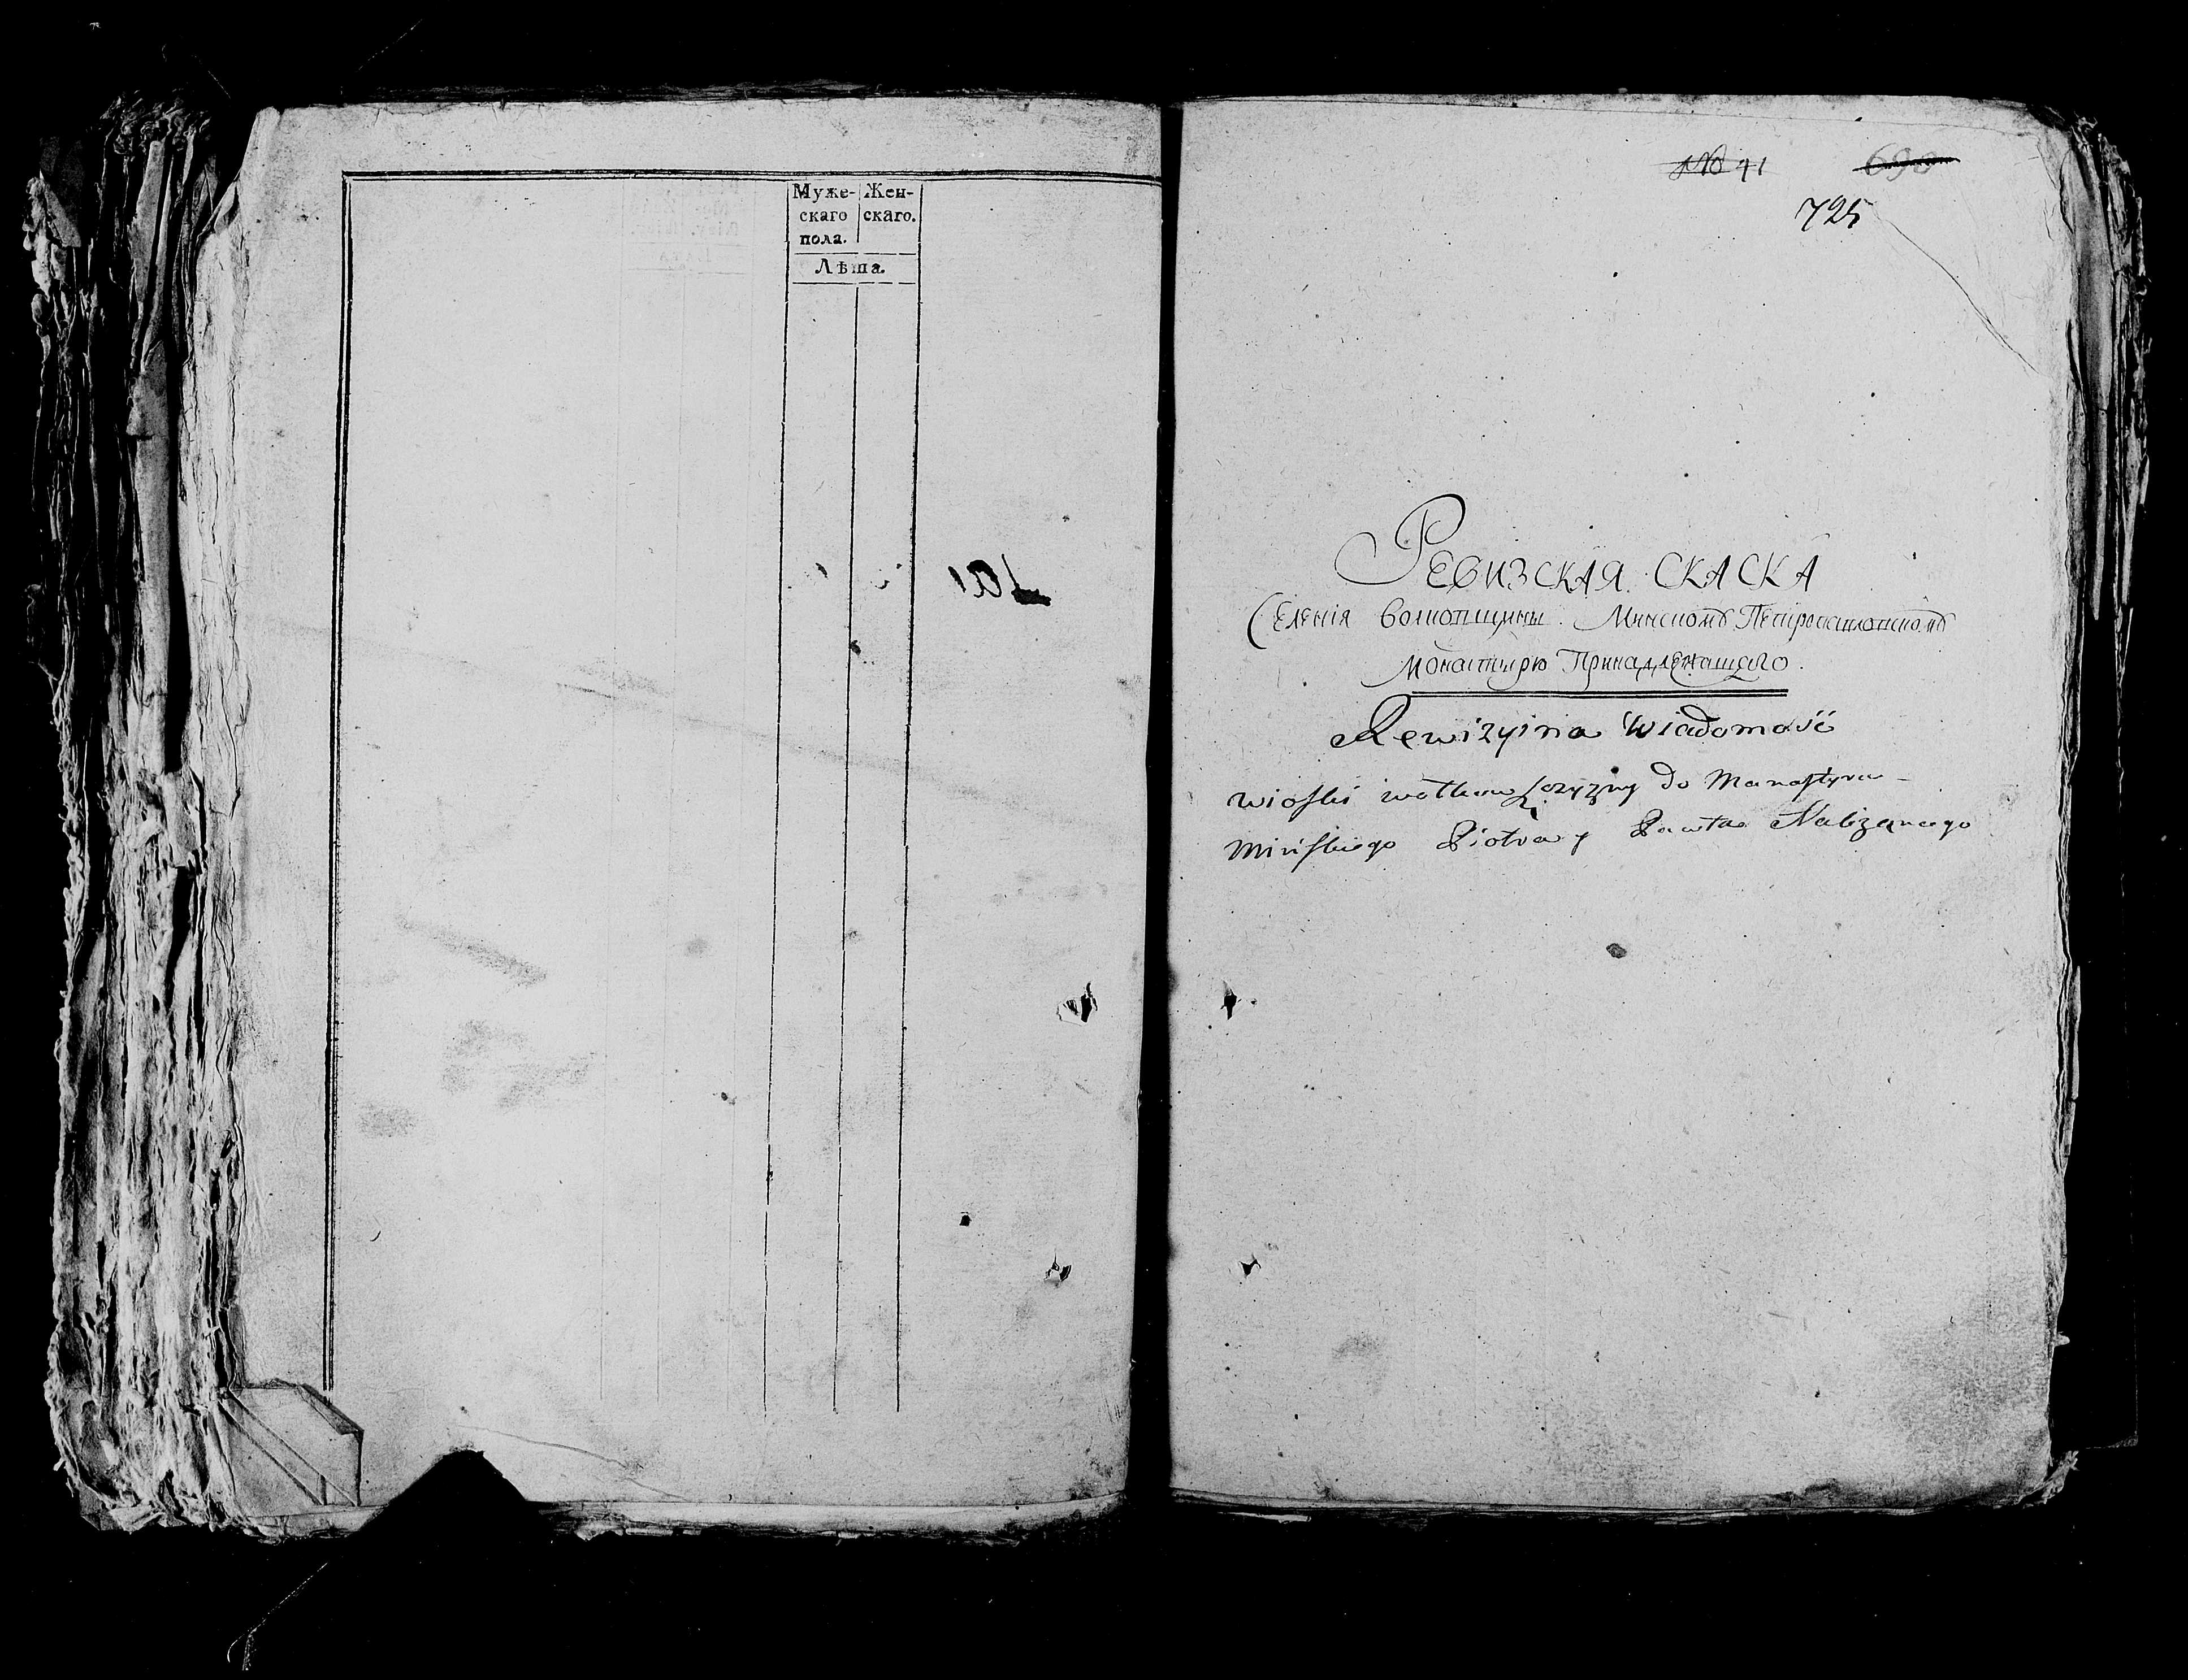 Муже-
скаго
пола.
Жен-
скаго.
Лѣта.
№ 41 690
725
Ревизская скаска
Селения Минскомъ Петропавловскомъ
Монастырю Принадлежащаго.
Rewizyina Wiadomość
wioski do Manastyru
Minskiego Piotra y Pawła Należącego